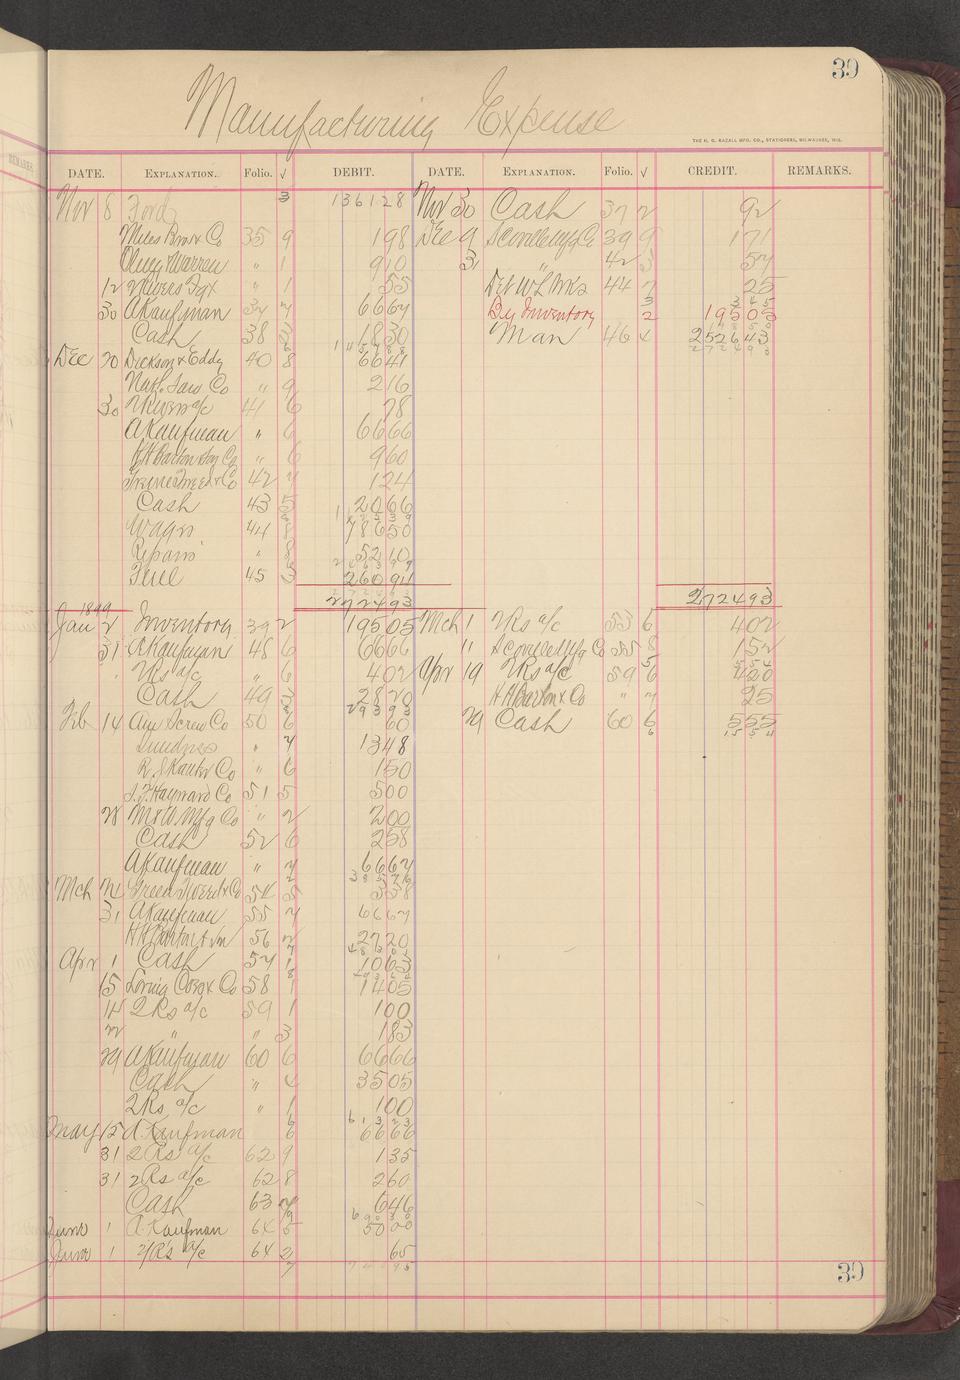 39
Manufacturing Expense
THE H. G. RAZALL MFG. CO., STATIONERS, MILWAUKEE, WIS.
DATE. EXPLANATION. Folio. √ DEBIT. DATE. EXPLANATION. Folio. √ CREDIT. REMARKS.
Nov 8 Ford 3 136128 Nov 30 Cash 37 2 92
Miles Bro & Co 35 9 198 Dec 9 Scoville Mfg Co 39 9 171
Warren " 1 910 31 " 42 3 57
12 55 44 7 25
30 A Kaufman 37 7 6667 By Inventory 2 19505
Cash 38 3 1830 Man 46 4 252643
Dec 20 Dickson & Eddy 40 8 6641
Co " 9 216
30 a/c 41 6 78
A Kaufman " 6 6666
H H Barton & Son Co " 6 960
Co 42 7 124
Cash 43 5 2066
Wages 44 8 78650
Repairs " 8 5210
Fuel 45 3 26094
272493 272493
1899
Jan 2 Inventory 39 2 19505 Mch 1 2Rs a/c 53 6 402
31 A Kaufman 48 6 6666 11 Scoville Mfg Co 8 152
" 2Rs a/c " 6 402 Apr 19 2Rs a/c 59 6 420
Cash 49 3 2820 H H Barton & Co " 7 25
Feb 14 Am Screw Co 50 6 60 29 Cash 60 6 555
Sundries " 7 1348
Co " 6 150
Hayward Co 51 5 500
28 M & W. Mfg Co " 2 200
Cash 52 6 258
A Kaufman " 7 6667
Mch Green Tweed & Co 54 5 338
31 A Kaufman 55 7 6667
H H Barton & Sn 56 2 2720
Apr 1 Cash 57 1 1063
15 Loring Coes & Co 58 1 1405
14 2Rs a/c 59 1 100
" " 3 183
29 A Kaufman 60 6 6666
Cash " 4 3505
2Rs a/c " 1 100
May 15 A Kaufman 6 6666
31 2Rs a/c 62 9 135
31 2Rs a/c 62 8 260
Cash 63 646
June 1 A Kaufman 64 5 5000
June 1 2/R's a/c 64 2 65
39